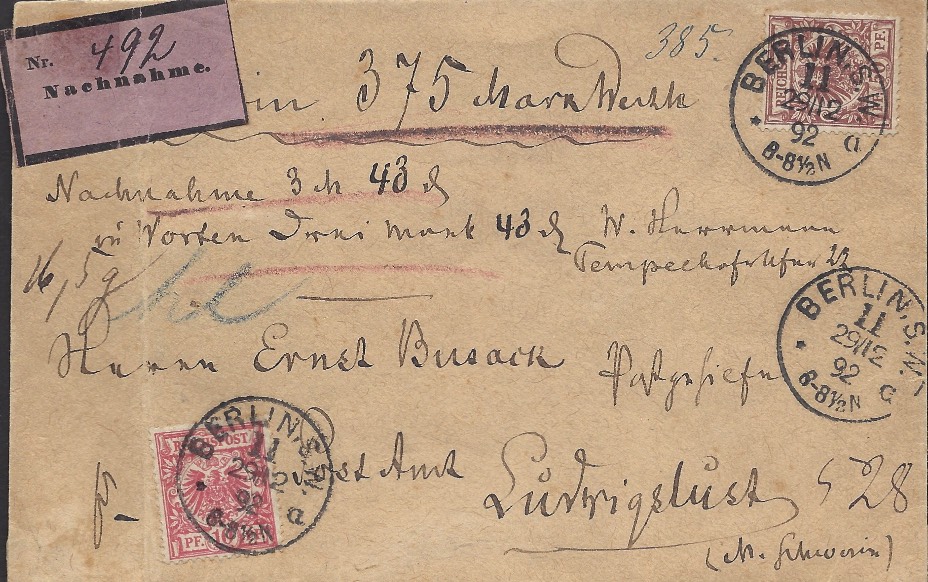 Nr. 492
Nachnahme.
385.
375 Mark Werth
Nachnahme 3 M 43 d
in Worten Drei Mark 43 d
W. Herrmann
Tempelhofer Ufer 22
16,5 g
Herrn Ernst Busack
Ludwigslust
528
(M. Schwerin)
PF.
BERLIN, S.W.
11
29/12
92
8-8½N
BERLIN, S.W.
11
29/12
92
8-8½N
REICHSPOST
PF.
BERLIN, S.W.
11
29/12
92
8-8½N